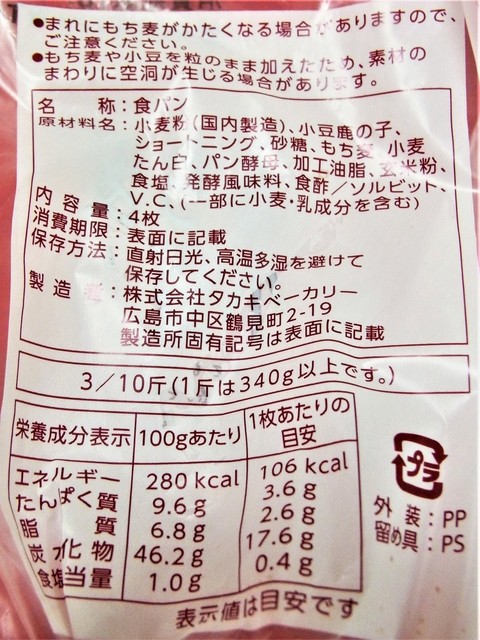 ●まれにもち麦がかたくなる場合がありますので、
ご注意ください。
●もち麦や小豆を粒のまま加えたため、素材の
まわりに空洞が生じる場合があります。
名 称：食パン
原材料名：小麦粉(国内製造)、小豆鹿の子、
ショートニング、砂糖、もち麦、小麦
たん白、パン酵母、加工油脂、玄米粉、
食塩、発酵風味料、食酢／ソルビット、
V.C、(一部に小麦・乳成分を含む)
内容量：4枚
消費期限：表面に記載
保存方法：直射日光、高温多湿を避けて
保存してください。
製造者：株式会社タカキベーカリー
広島市中区鶴見町2-19
製造所固有記号は表面に記載
3／10斤(1斤は340g以上です。)
栄養成分表示 100gあたり 1枚あたりの目安
エネルギー 280 kcal 106 kcal
たんぱく質 9.6 g 3.6 g
脂質 6.8 g 2.6 g
炭水化物 46.2 g 17.6 g
食塩相当量 1.0 g 0.4 g
表示値は目安です
プラ
外装：PP
留め具：PS